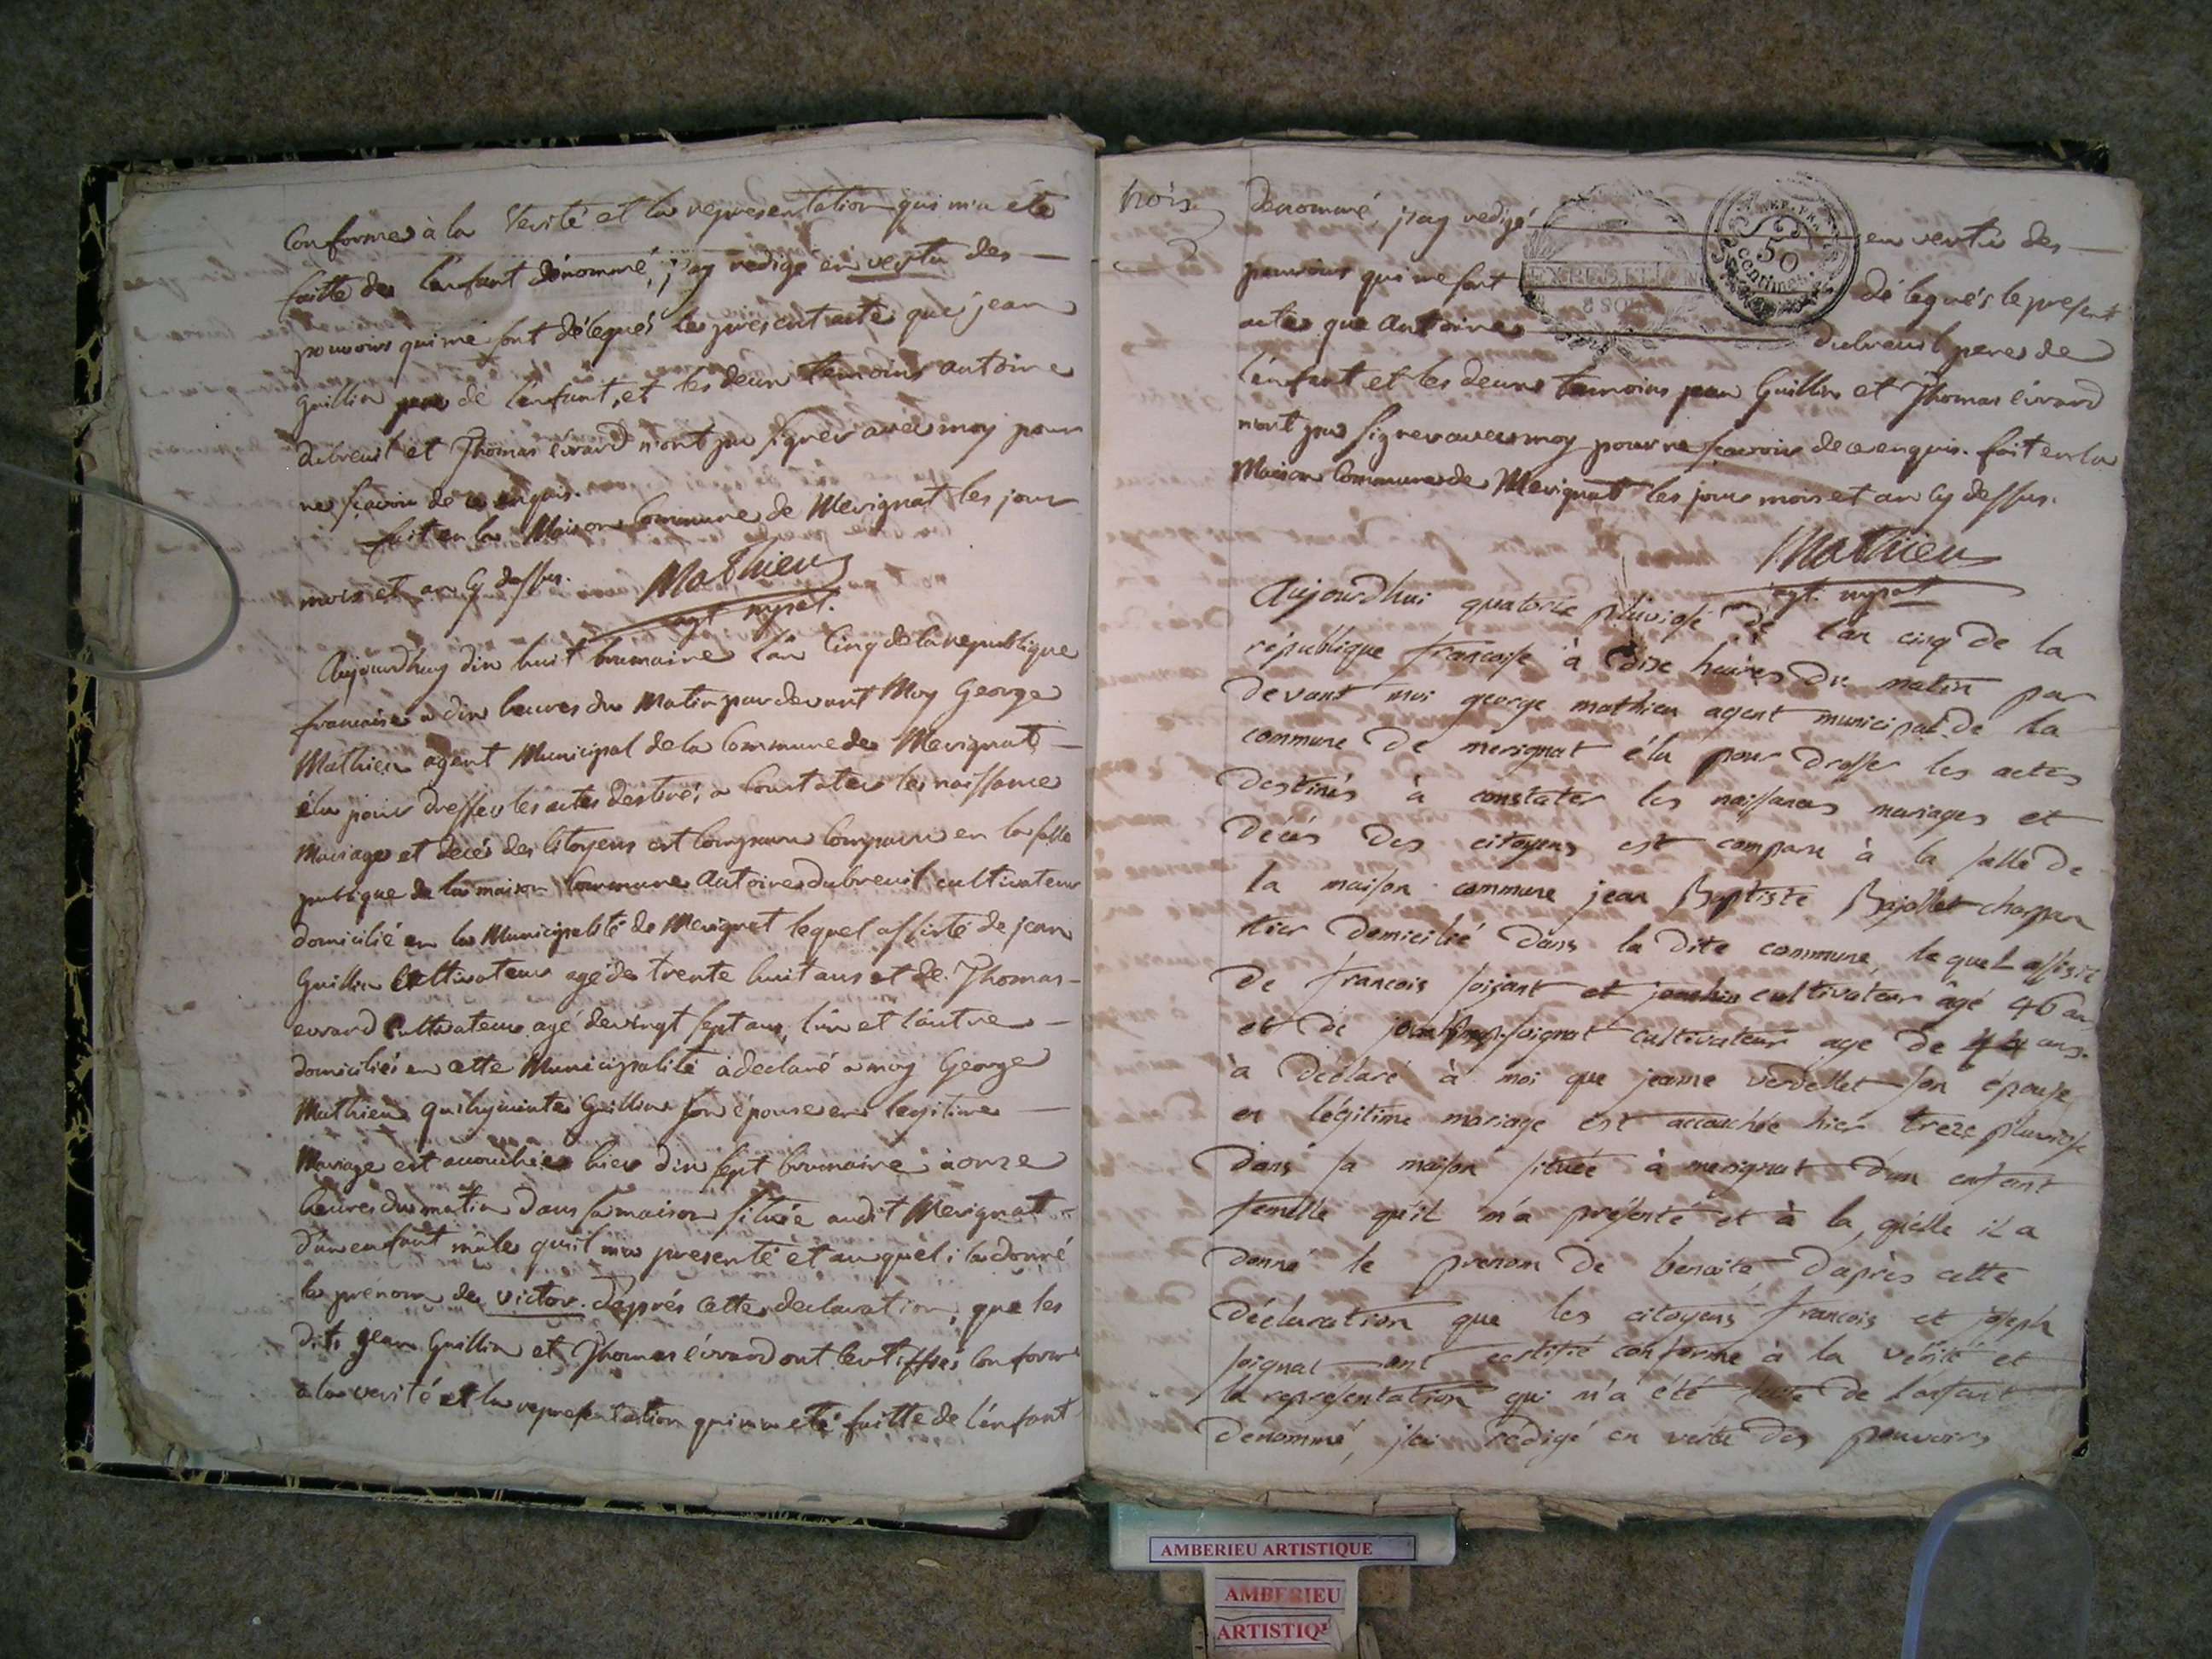 Conforme à la Verité et la representation qui m'a été
faitte de l'enfant dénommé, j'ay redigé en vertu des
pouvoirs qui me sont délégués le present acte que jean
Guillin pere de l'enfant, et les deux temoins antoine
dubreuil et Thomas évrard n'ont pu signer avec moy pour
ne sçavoir de ce enquis.
fait en la Maison Commune de Merignat les jour
mois et an cy dessus. Mathieu
agt mpal.
Aujourdhuy dix huit brumaire l'an Cinq de la republique
francaise a dix heures du Matin par devant Moy George
Mathieu agent Municipal de la Commune de Merignat
élu pour dresser les actes destinés a Constater les naissance
Mariage et decés des Citoyens est Comparu Comparu en la salle
publique de la maison Commune Antoine dubreuil cultivateur
domicilié en la Municipalité de Merignat lequel assisté de jean
Guillin Cultivateur agé de trente huit ans et de Thomas
evrard Cultivateur agé de vingt sept ans, l'un et l'autre
domiciliés en cette Municipalité a declaré a moy George
Mathieu que hyminte Guillin son épouse en legitime
Mariage est accouchée hier dix sept brumaire à onze
heures du matin dans sa maison située audit Merignat
d'un enfant mâle qu'il m'a presenté et auquel il a donné
le prenom de victor. d'aprés cette declaration, que les
dits jean Guillin et Thomas évrard ont Certiffiés Conforme
à la verité et la representation qui m'a eté faitte de l'énfant
trois
Denommé, j'ay redigé en vertu des
EXPEDITION
8 SOLS
REP. FRA.
50
Centimes.
pouvoirs qui me sont délégués le present
acte que Antoine dubreuil pere de
l'enfant et les deux temoins jean Guillin et Thomas évrard
n'ont pu signer avec moy pour ne sçavoir de ce enquis. fait en la
Maison Commune de Merignat les jour mois et an cy dessus.
Mathieu
agt. mpal
Aujourdhui quatorze pluviose de l'an cinq de la
république francoise à dix heures du matin par
devant moi george mathieu agent municipal de la
commune de merignat élu pour dresser les actes
destinés à constater les naissances mariages et
décés des citoyens est comparu à la salle de
la maison commune jean Baptiste Bajollet charpan
tier domicilié dans la dite commune, le quel assisté
de francois soignat et cultivateur âgé 46 an
et de soignat cultivateur age de 44 ans.
à déclaré à moi que jeanne verdellet son épouse
en légitime mariage est accouchée hier treze pluviose
dans sa maison située à merignat d'un enfant
femelle qu'il m'a présenté et à la, quelle il a
donné le prenom de benoite, d'aprés cette
déclaration que les citoyens francois et joseph
soignat ont certifié conforme à la vérité et
la representation qui m'a été faite de l'anfant
denommé, j'ai rédigé en vertu des pouvoirs
AMBERIEU ARTISTIQUE
AMBERIEU
ARTISTIQ